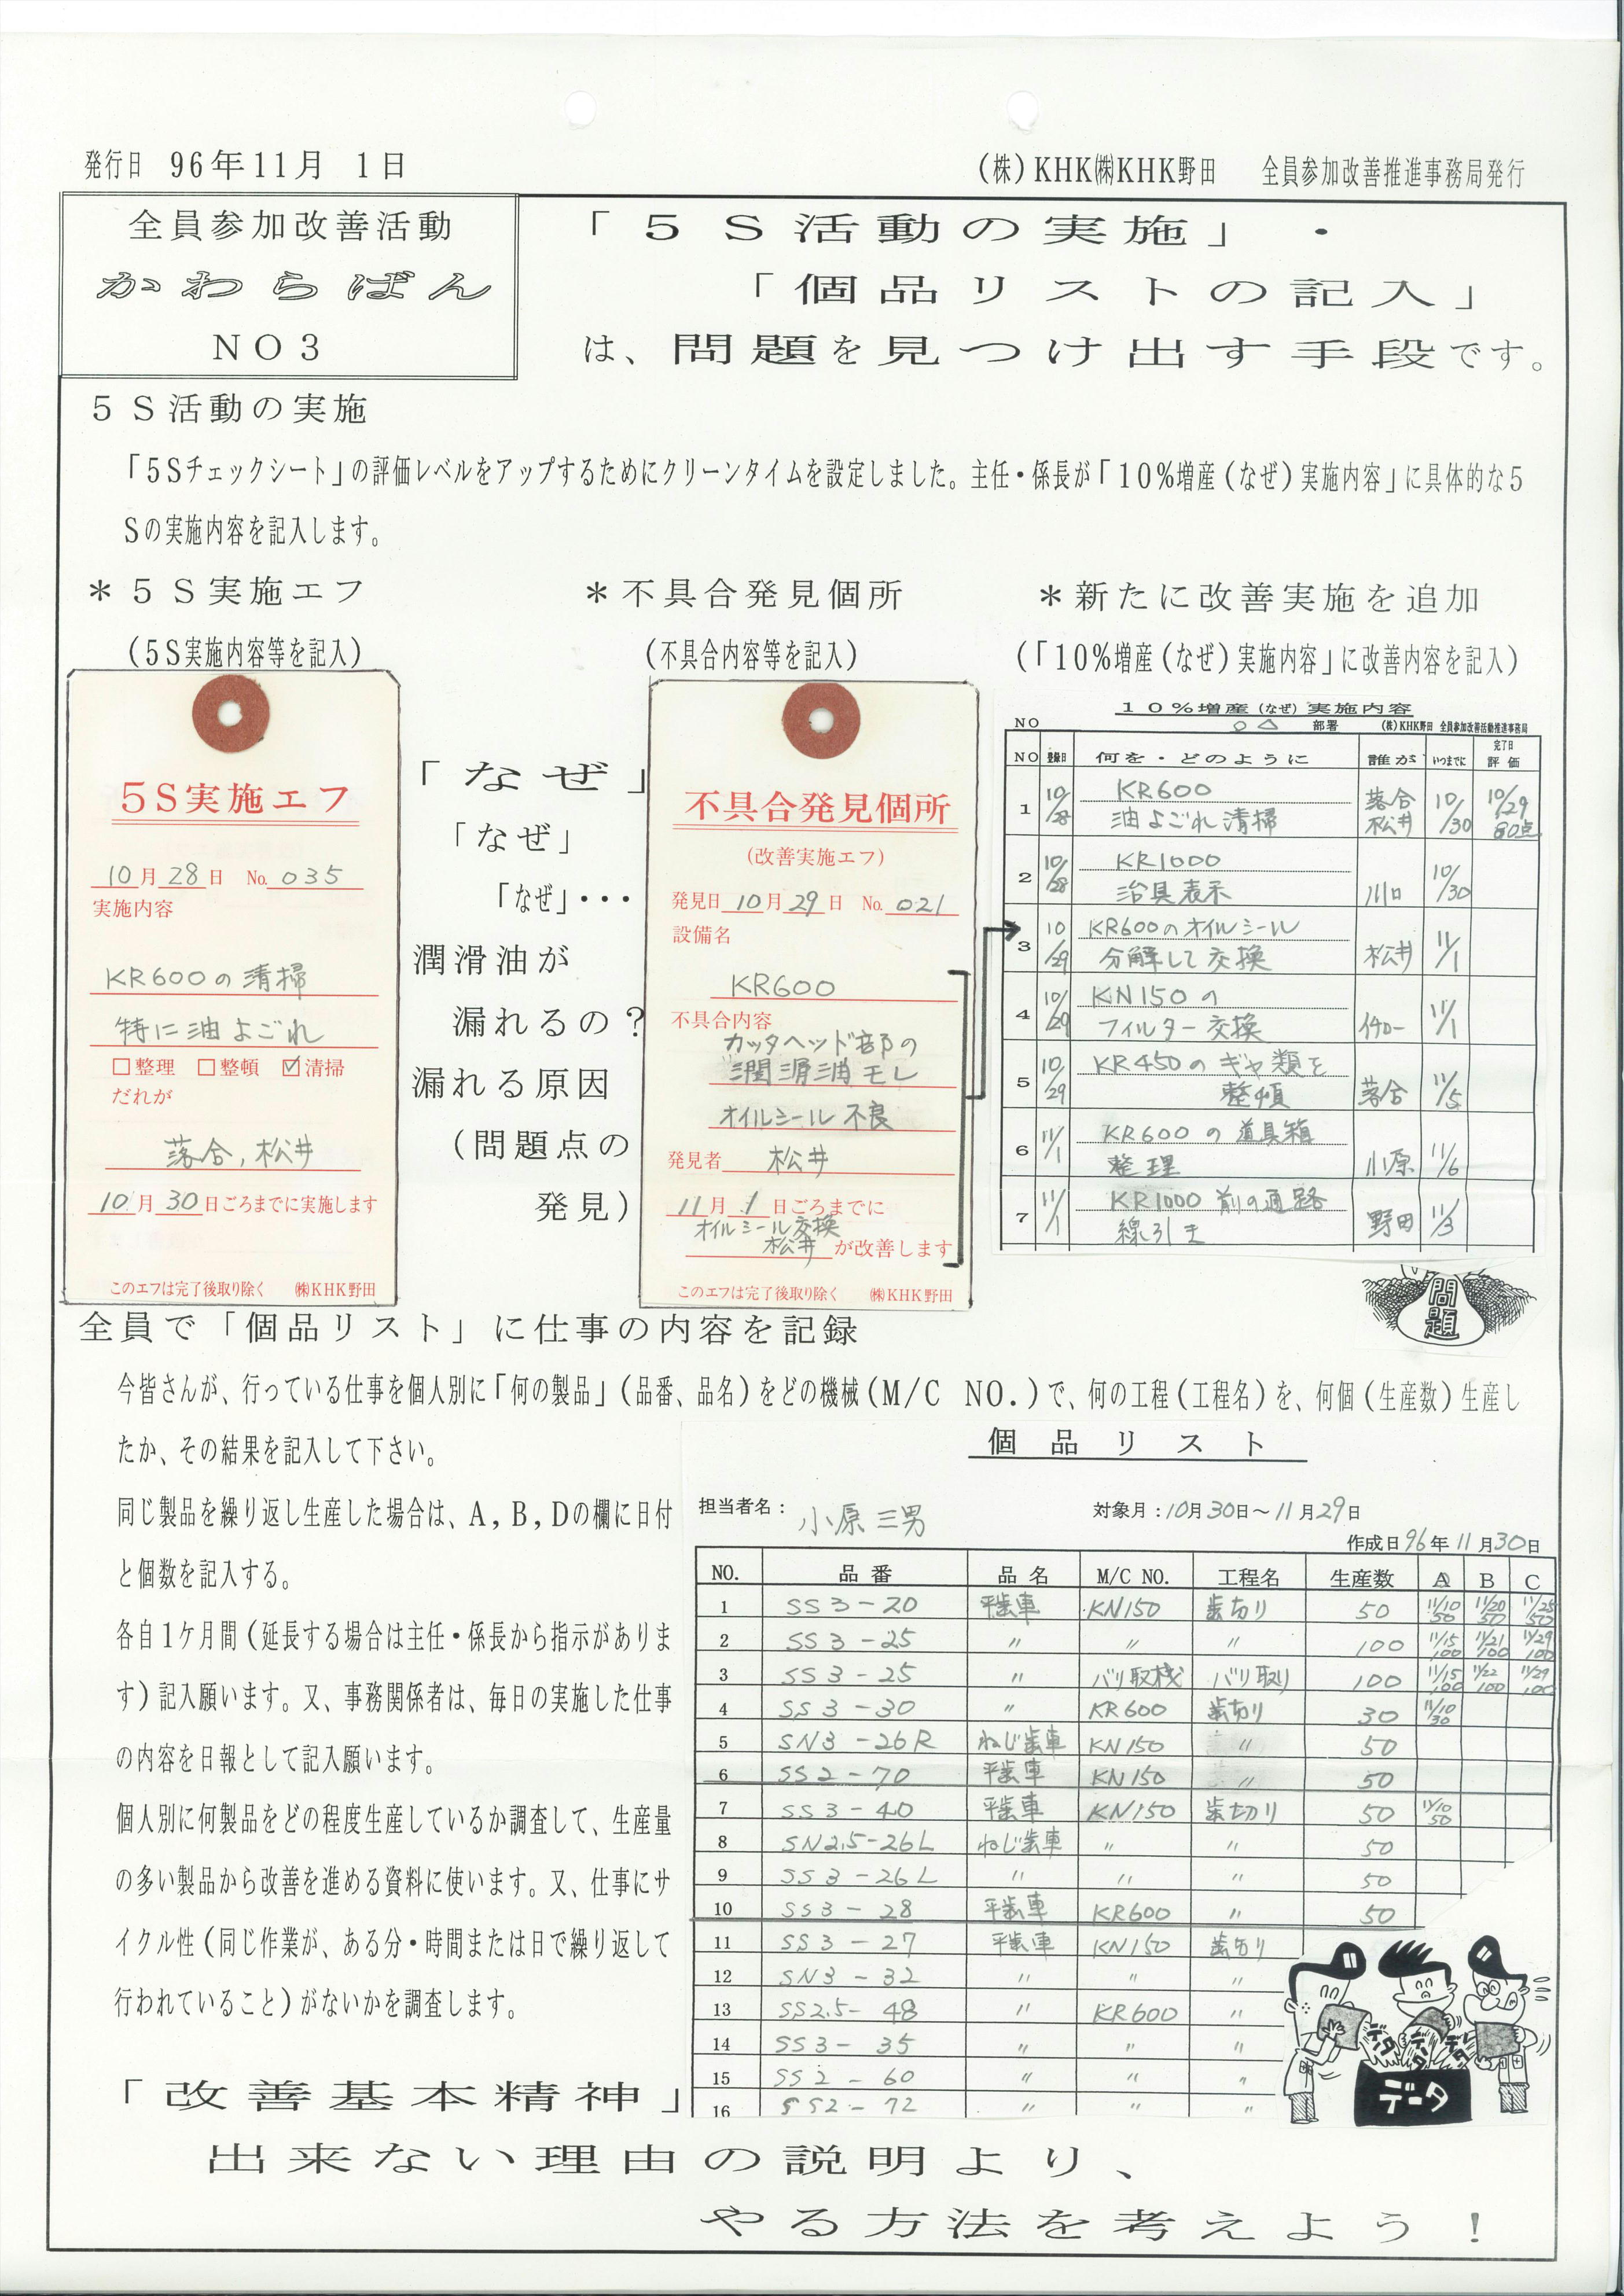 発行日 96年11月 1日
(株)KHK㈱KHK野田 全員参加改善推進事務局発行
全員参加改善活動
かわらばん
NO3
「5S活動の実施」・
「個品リストの記入」
は、問題を見つけ出す手段です。
5S活動の実施
「5Sチェックシート」の評価レベルをアップするためにクリーンタイムを設定しました。主任・係長が「10%増産(なぜ)実施内容」に具体的な5
Sの実施内容を記入します。
*5S実施エフ
(5S実施内容等を記入)
*不具合発見個所
(不具合内容等を記入)
*新たに改善実施を追加
(「10%増産(なぜ)実施内容」に改善内容を記入)
5S実施エフ
10月28日 No.035
実施内容
KR600の清掃
特に油よごれ
□整理 □整頓 ☑清掃
だれが
落合,松井
10月30日ごろまでに実施します
このエフは完了後取り除く ㈱KHK野田
「なぜ」
「なぜ」
「なぜ」・・・
潤滑油が
漏れるの?
漏れる原因
(問題点の
発見)
不具合発見個所
(改善実施エフ)
発見日10月29日 No.021
設備名
KR600
不具合内容
カッタヘッド部の
潤滑油モレ
オイルシール不良
発見者 松井
11月1日ごろまでに
オイルシール交換
松井が改善します
このエフは完了後取り除く ㈱KHK野田
10%増産(なぜ)実施内容
NO ○△ 部署 (株)KHK野田 全員参加改善活動推進事務局
NO 登録日 何を・どのように 誰が いつまでに 完了日 評価
1 10/28 KR600 油よごれ清掃 落合 松井 10/30 10/29 80点
2 10/28 KR1000 治具表示 川口 10/30
3 10/29 KR600のオイルシール 分解して交換 松井 11/1
4 10/29 KN150の フィルター交換 11/1
5 10/29 KR450のギヤ類を 整頓 落合 11/5
6 11/1 KR600の道具箱 整理 小原 11/6
7 11/1 KR1000前の通路 線引き 野田 11/3
問題
全員で「個品リスト」に仕事の内容を記録
今皆さんが、行っている仕事を個人別に「何の製品」(品番、品名)をどの機械(M/C NO.)で、何の工程(工程名)を、何個(生産数)生産し
たか、その結果を記入して下さい。
同じ製品を繰り返し生産した場合は、A,B,Dの欄に日付
と個数を記入する。
各自1ケ月間(延長する場合は主任・係長から指示がありま
す)記入願います。又、事務関係者は、毎日の実施した仕事
の内容を日報として記入願います。
個人別に何製品をどの程度生産しているか調査して、生産量
の多い製品から改善を進める資料に使います。又、仕事にサ
イクル性(同じ作業が、ある分・時間または日で繰り返して
行われていること)がないかを調査します。
個品リスト
担当者名: 小原三男 対象月:10月30日〜11月29日
作成日96年11月30日
NO. 品番 品名 M/C NO. 工程名 生産数 A B C
1 SS3-20 平歯車 KN150 歯切り 50 11/10 50 11/20 50 11/25 50
2 SS3-25 〃 〃 〃 100 11/15 100 11/21 100 11/29 100
3 SS3-25 〃 バリ取機 バリ取り 100 11/15 100 11/22 100 11/29 100
4 SS3-30 〃 KR600 歯切り 30 11/10 30
5 SN3-26R ねじ歯車 KN150 〃 50
6 SS2-70 平歯車 KN150 〃 50
7 SS3-40 平歯車 KN150 歯切り 50 11/10 50
8 SN2.5-26L ねじ歯車 〃 〃 50
9 SS3-26L 〃 〃 〃 50
10 SS3-28 平歯車 KR600 〃 50
11 SS3-27 平歯車 KN150 歯切り
12 SN3-32 〃 〃 〃
13 SS2.5-48 〃 KR600 〃
14 SS3-35 〃 〃 〃
15 SS2-60 〃 〃 〃
16 SS2-72 〃 〃 〃
データ データ データ
データ
「改善基本精神」
出来ない理由の説明より、
やる方法を考えよう!